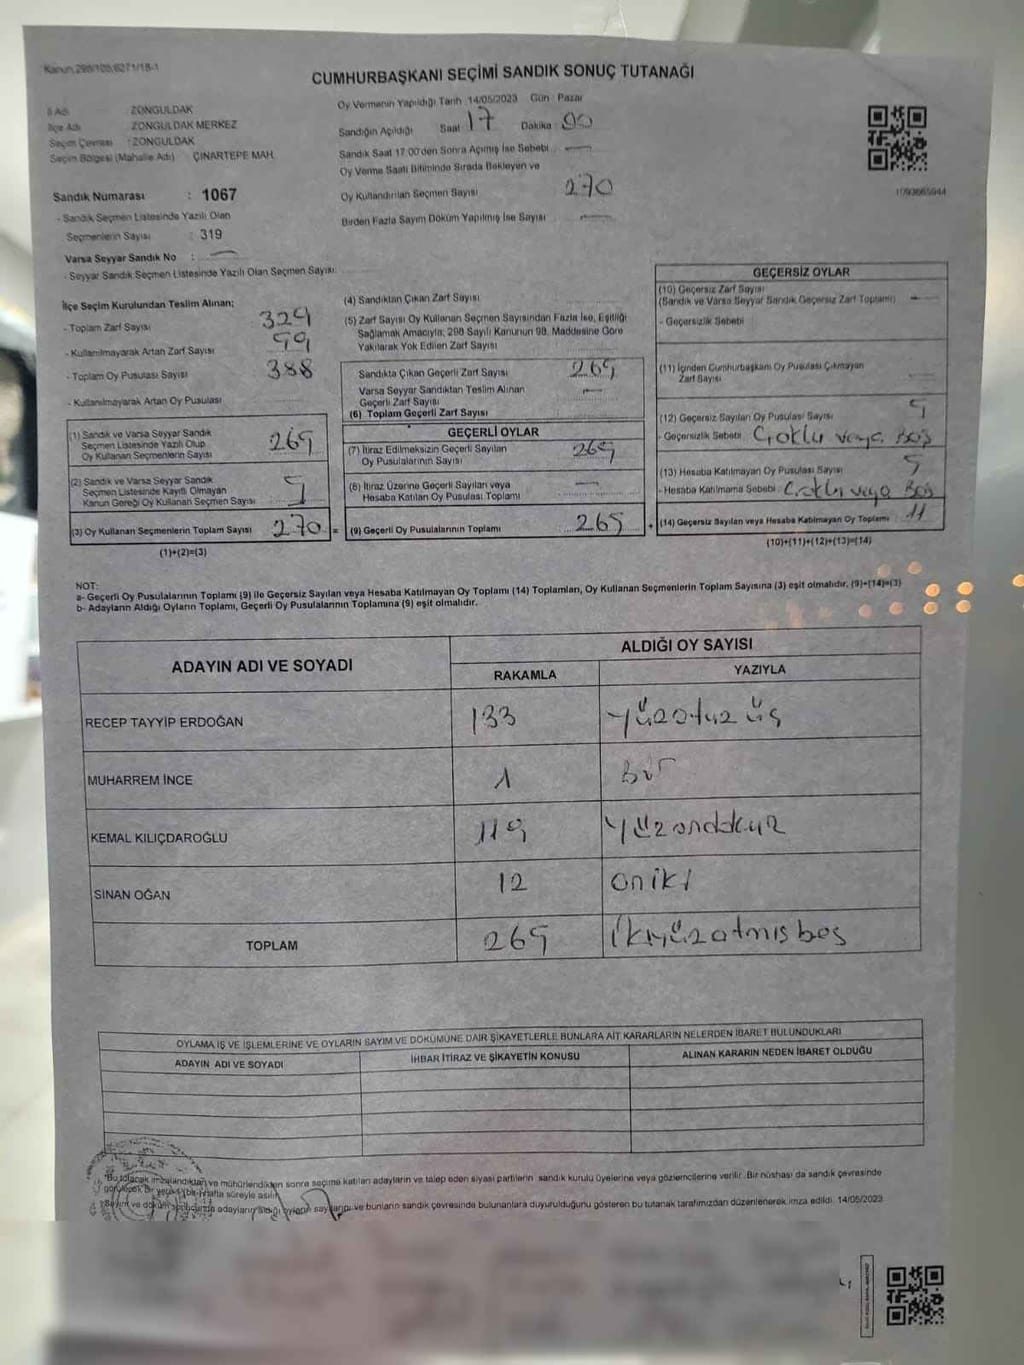 Kanun;298/105,6271/18-1
CUMHURBAŞKANI SEÇİMİ SANDIK SONUÇ TUTANAĞI
İl Adı ZONGULDAK
İlçe Adı ZONGULDAK MERKEZ
Seçim Çevresi : ZONGULDAK
Seçim Bölgesi (Mahalle Adı) ÇINARTEPE MAH.
Sandık Numarası : 1067
- Sandık Seçmen Listesinde Yazılı Olan
Seçmenlerin Sayısı : 319
Varsa Seyyar Sandık No :
- Seyyar Sandık Seçmen Listesinde Yazılı Olan Seçmen Sayısı:
Oy Vermenin Yapıldığı Tarih 14/05/2023 Gün : Pazar
Sandığın Açıldığı Saat 17 Dakika : 00
Sandık Saat 17:00'den Sonra Açılmış İse Sebebi
Oy Verme Saati Bitiminde Sırada Bekleyen ve
Oy Kullandırılan Seçmen Sayısı 270
Birden Fazla Sayım Döküm Yapılmış İse Sayısı
1093665944
İlçe Seçim Kurulundan Teslim Alınan;
- Toplam Zarf Sayısı 329
- Kullanılmayarak Artan Zarf Sayısı
- Toplam Oy Pusulası Sayısı 388
- Kullanılmayarak Artan Oy Pusulası
(1) Sandık ve Varsa Seyyar Sandık
Seçmen Listesinde Yazılı Olup
Oy Kullanan Seçmenlerin Sayısı 269
(2) Sandık ve Varsa Seyyar Sandık
Seçmen Listesinde Kayıtlı Olmayan
Kanun Gereği Oy Kullanan Seçmen Sayısı
(3) Oy Kullanan Seçmenlerin Toplam Sayısı 270 =
(1)+(2)=(3)
(4) Sandıktan Çıkan Zarf Sayısı
(5) Zarf Sayısı Oy Kullanan Seçmen Sayısından Fazla İse, Eşitliği
Sağlamak Amacıyla; 298 Sayılı Kanunun 98. Maddesine Göre
Yakılarak Yok Edilen Zarf Sayısı
Sandıkta Çıkan Geçerli Zarf Sayısı 265
Varsa Seyyar Sandıktan Teslim Alınan
Geçerli Zarf Sayısı
(6) Toplam Geçerli Zarf Sayısı
GEÇERLİ OYLAR
(7) İtiraz Edilmeksizin Geçerli Sayılan
Oy Pusulalarının Sayısı 265
(8) İtiraz Üzerine Geçerli Sayılan veya
Hesaba Katılan Oy Pusulası Toplamı
(9) Geçerli Oy Pusulalarının Toplamı 265 +
GEÇERSİZ OYLAR
(10) Geçersiz Zarf Sayısı
(Sandık ve Varsa Seyyar Sandık Geçersiz Zarf Toplamı)
- Geçersizlik Sebebi
(11) İçinden Cumhurbaşkanı Oy Pusulası Çıkmayan
Zarf Sayısı
(12) Geçersiz Sayılan Oy Pusulası Sayısı
- Geçersizlik Sebebi Çoklu veya Boş
(13) Hesaba Katılmayan Oy Pusulası Sayısı 5
- Hesaba Katılmama Sebebi : Çoklu veya Boş
(14) Geçersiz Sayılan veya Hesaba Katılmayan Oy Toplamı 11
(10)+(11)+(12)+(13)=(14)
NOT:
a- Geçerli Oy Pusulalarının Toplamı (9) ile Geçersiz Sayılan veya Hesaba Katılmayan Oy Toplamı (14) Toplamları, Oy Kullanan Seçmenlerin Toplam Sayısına (3) eşit olmalıdır. (9)+(14)=(3)
b- Adayların Aldığı Oyların Toplamı, Geçerli Oy Pusulalarının Toplamına (9) eşit olmalıdır.
ADAYIN ADI VE SOYADI
ALDIĞI OY SAYISI
RAKAMLA YAZIYLA
RECEP TAYYİP ERDOĞAN 133 Yüzotuz üç
MUHARREM İNCE 1 Bir
KEMAL KILIÇDAROĞLU 119 Yüzondokuz
SİNAN OĞAN 12 oniki
TOPLAM 265 İkiyüzatmışbeş
OYLAMA İŞ VE İŞLEMLERİNE VE OYLARIN SAYIM VE DÖKÜMÜNE DAİR ŞİKAYETLERLE BUNLARA AİT KARARLARIN NELERDEN İBARET BULUNDUKLARI
ADAYIN ADI VE SOYADI İHBAR İTİRAZ VE ŞİKAYETİN KONUSU ALINAN KARARIN NEDEN İBARET OLDUĞU
imzalandıktan ve mühürlendikten sonra seçime katılan adayların ve talep eden siyasi partilerin sandık kurulu üyelerine veya gözlemcilerine verilir. Bir nüshası da sandık çevresinde
hafta süreyle asılır.
adayların aldığı oyların sayılarını ve bunların sandık çevresinde bulunanlara duyurulduğunu gösteren bu tutanak tarafımızdan düzenlenerek imza edildi. 14/05/2023